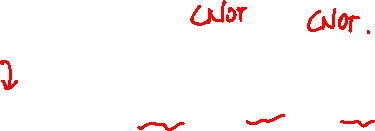 CNOT CNOT.